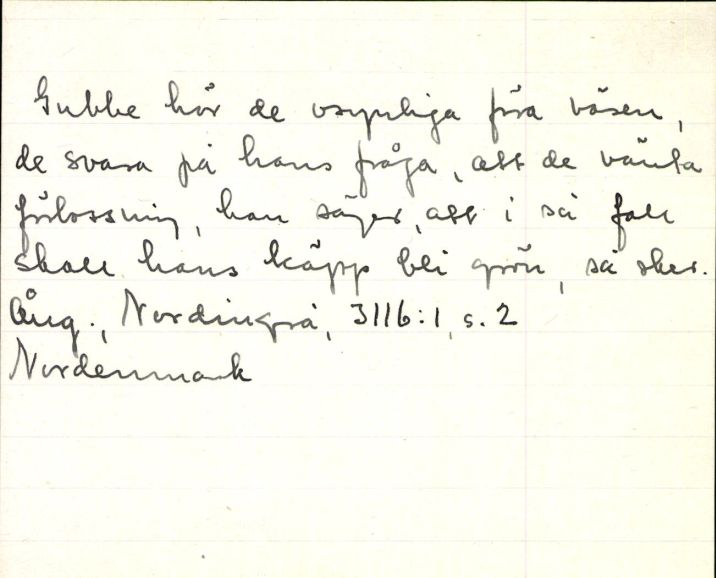 Gubbe hör de osynliga föra väsen,
de svara på hans fråga, att de vänta
förlossning, han säger, att i så fall
skall hans käpp bli grön, så sker.
Ång., Nordingrå, 3116:1, s. 2
Nordenmark